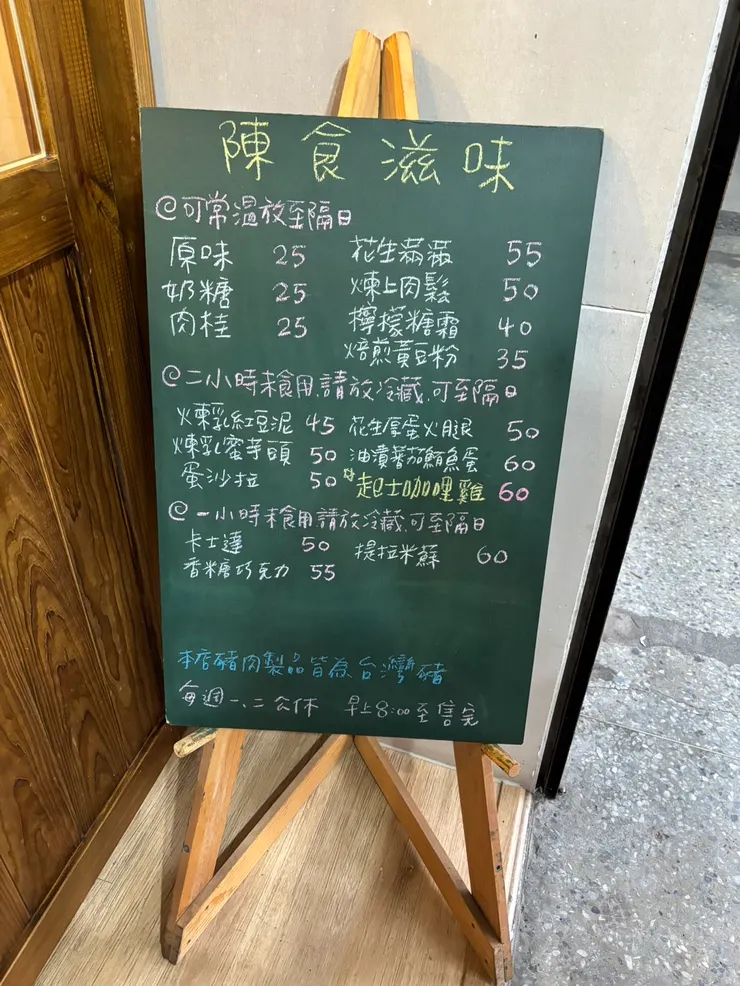 陳食滋味
@可常溫放至隔日
原味 25 花生滿滿 55
奶糖 25 煉上肉鬆 50
肉桂 25 檸檬糖霜 40
焙煎黃豆粉 35
@二小時未食用,請放冷藏,可至隔日
煉乳紅豆泥 45 花生厚蛋火腿 50
煉乳蜜芋頭 50 油漬蕃茄鮪魚蛋 60
蛋沙拉 50 起士咖哩雞 60
@一小時未食用請放冷藏,可至隔日
卡士達 50 提拉米蘇 60
香米糖巧克力 55
本店豬肉製品皆為台灣豬
每週一、二公休 早上8:00至售完